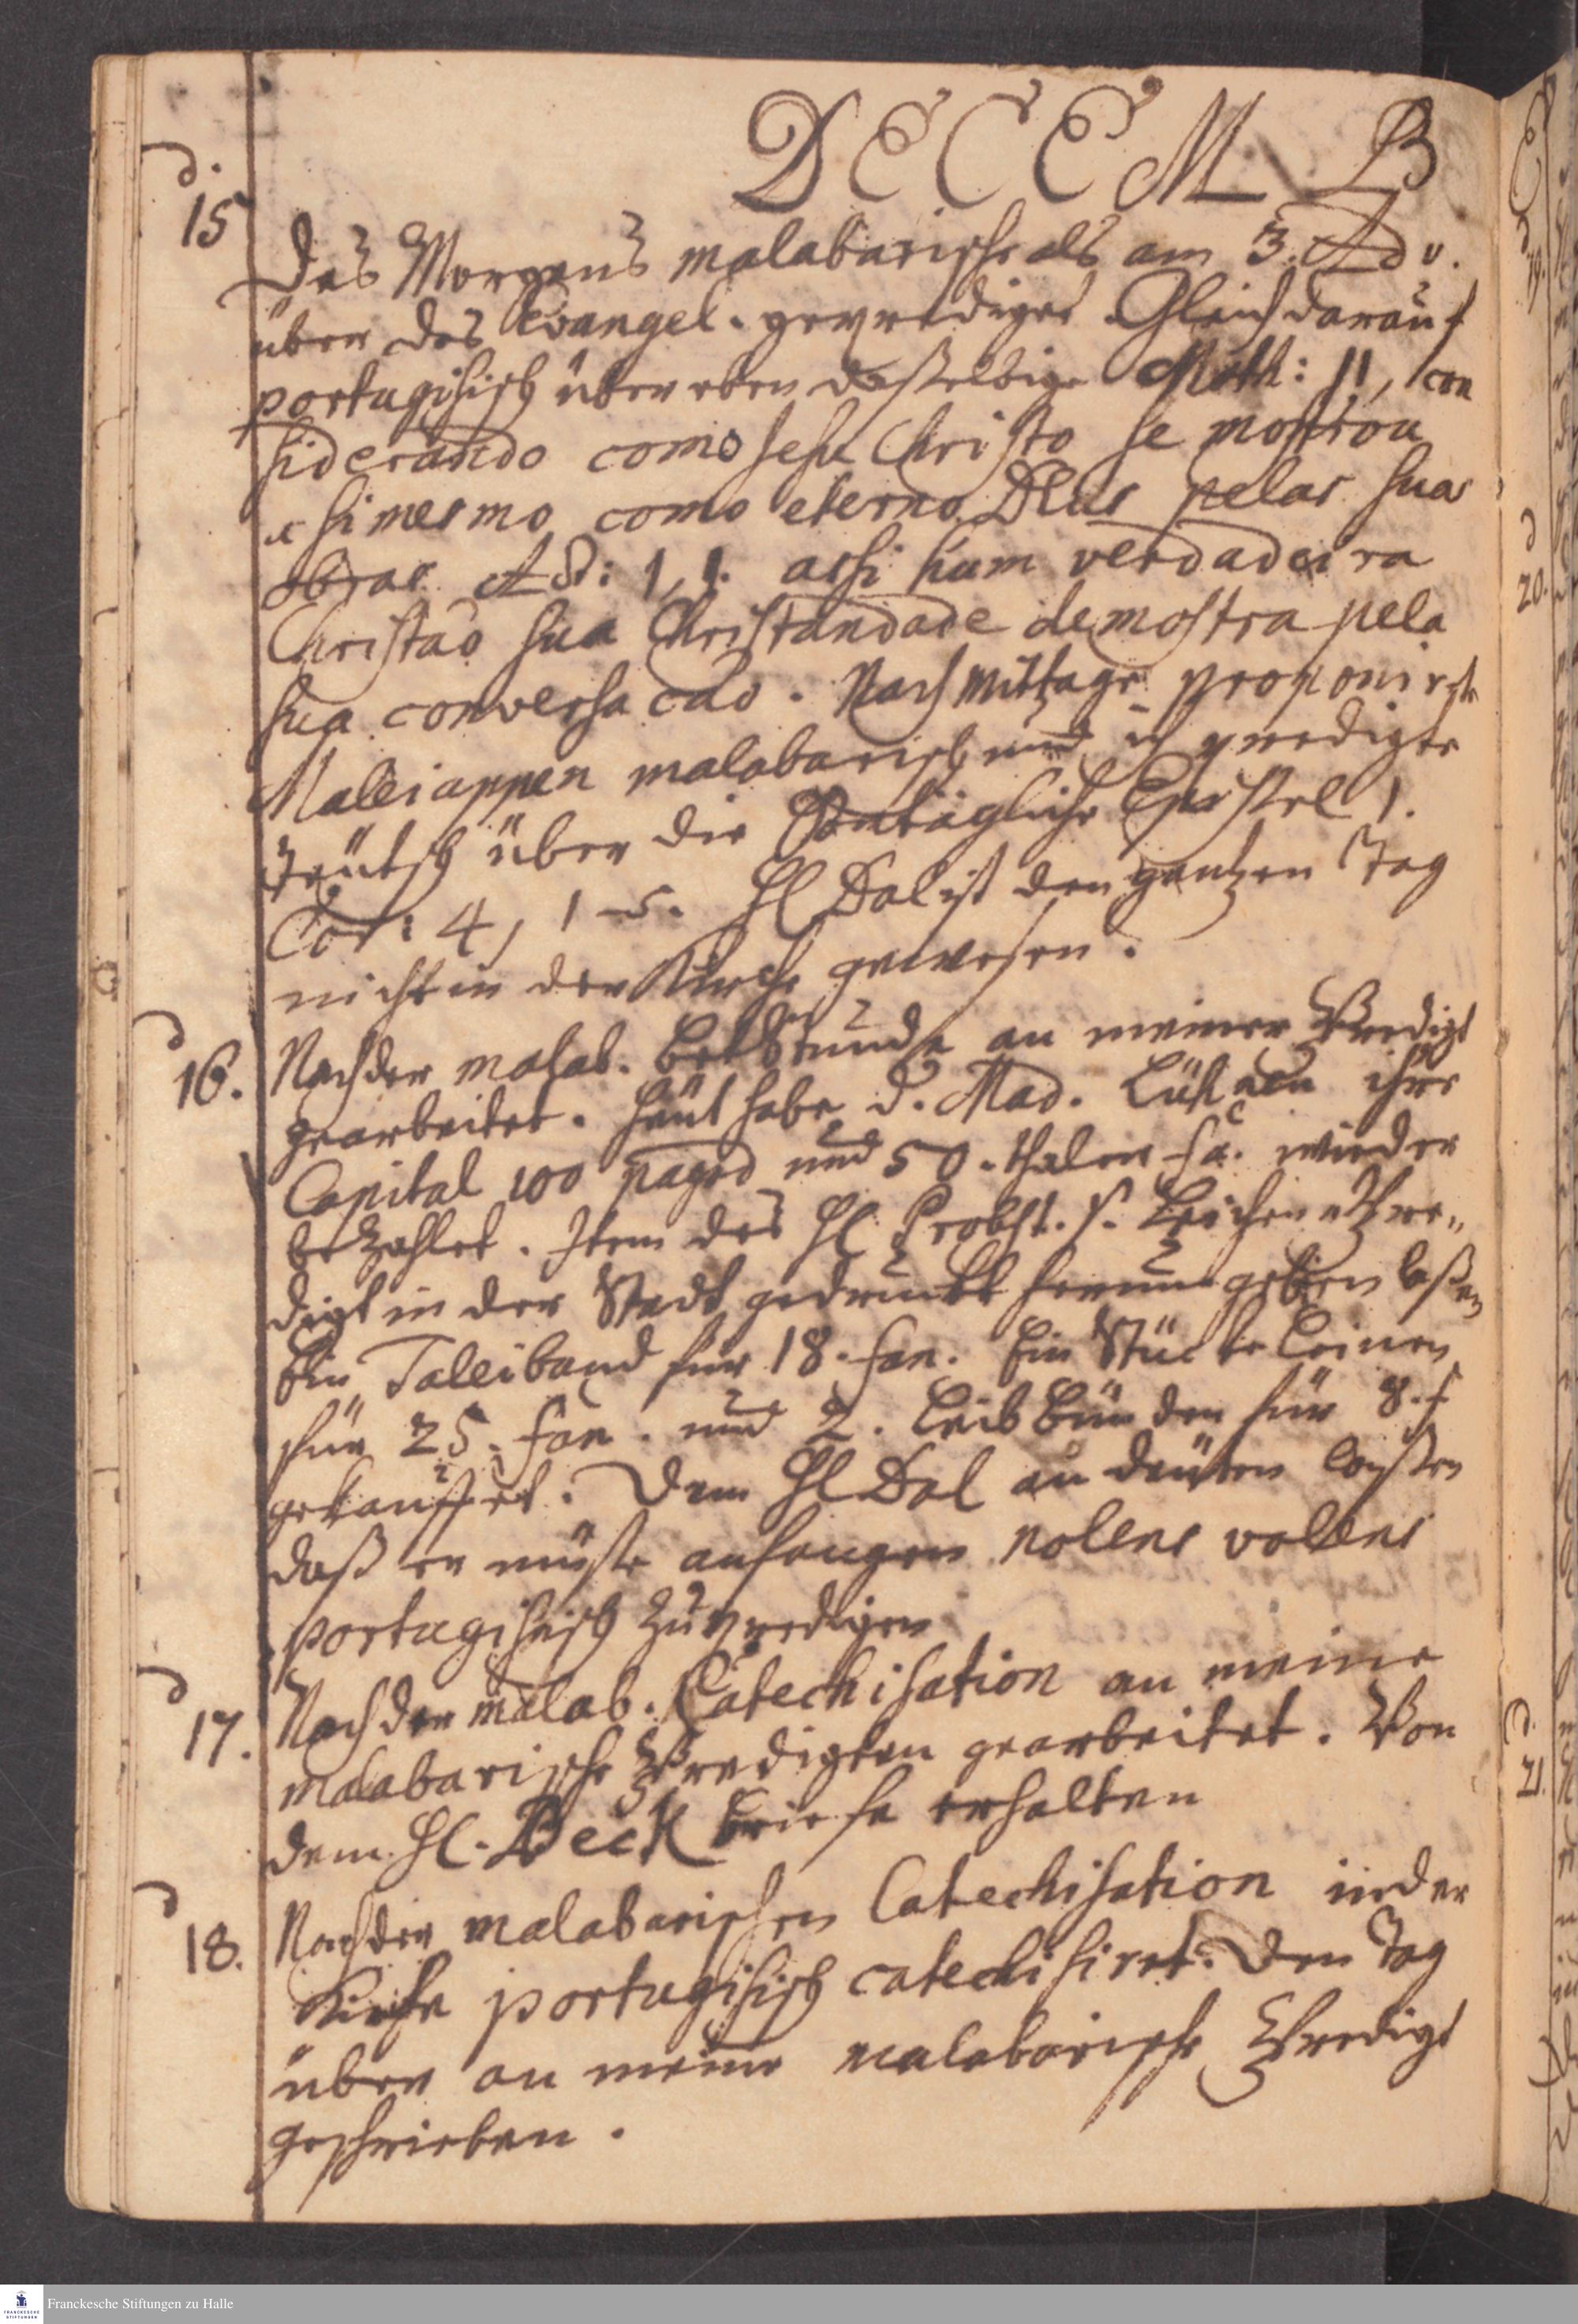 DECEMB
d.
15
Des Morgens malabarische als am 3. Adv.
über das Evangel. geprediget. Gleich darauf
portugisisch über eben dasselbige Math: 11, con
siderando como Jesu Christo se mostrou
a si mesmo como eterno Deus pelas suas
obras Act: 1, 1. assi hum verdadeira
Christaõ sua Christandade demostra pela
sua conversacaõ. Nachmittage proponirte
Maleiappen malabarisch und ich predigte
Teütsch über die Sontägliche Epistel 1.
Cor: 4, 1-5. Hl Dal ist den gantzen Tag
nicht in der Kirche gewesen.
d
16.
Nach der malab. Betstunde an meiner Predigt
gearbeitet. Heüt habe d. Mad. ihre
Capital 100 pagod und 50. thaler wieder
bezahlet. Item des Hl Probst. s. Leichen Pre-
digt in der Stadt gedruckt herum geben laßen
Ein Talleiband für 18. fan. Ein Stücke Leinen
für 25. fan. und 2. Leib Binden für 8. f
gekauffet. Dem Hl Dal andeüten laßen
daß er müste anfangen nolens volens
portugisisch zu predigen
d
17.
Nach der malab. Catechisation an meine
malabarische Predigten gearbeitet. Von
dem Hl. Beck briefe erhalten
d
18.
Nach der malabarischen Catechisation in der
Kirche portugisisch catechisiret. Den Tag
über an meine malabarische Predigt
geschrieben.
d
19.
d
20.
d.
21.
Franckesche Stiftungen zu Halle
FRANCKESCHE
STIFTUNGEN